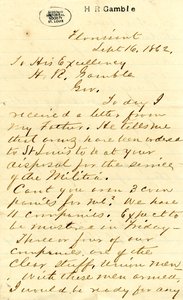 H R Gamble
Florissant
Sept 16, 1862.
To His Excellency
H. R. Gamble
Gov.
To day I
received a letter from
my Father. He tells me
that arms have been ordered
to St Louis to be at your
disposal for the service
of the Militia.
Cant you arm 3 com
panies for me? We have
4 companies. Expect to
be mustered in Friday
Three or four of our
companies are of the
Union men
With these men armed,
I would be ready for any